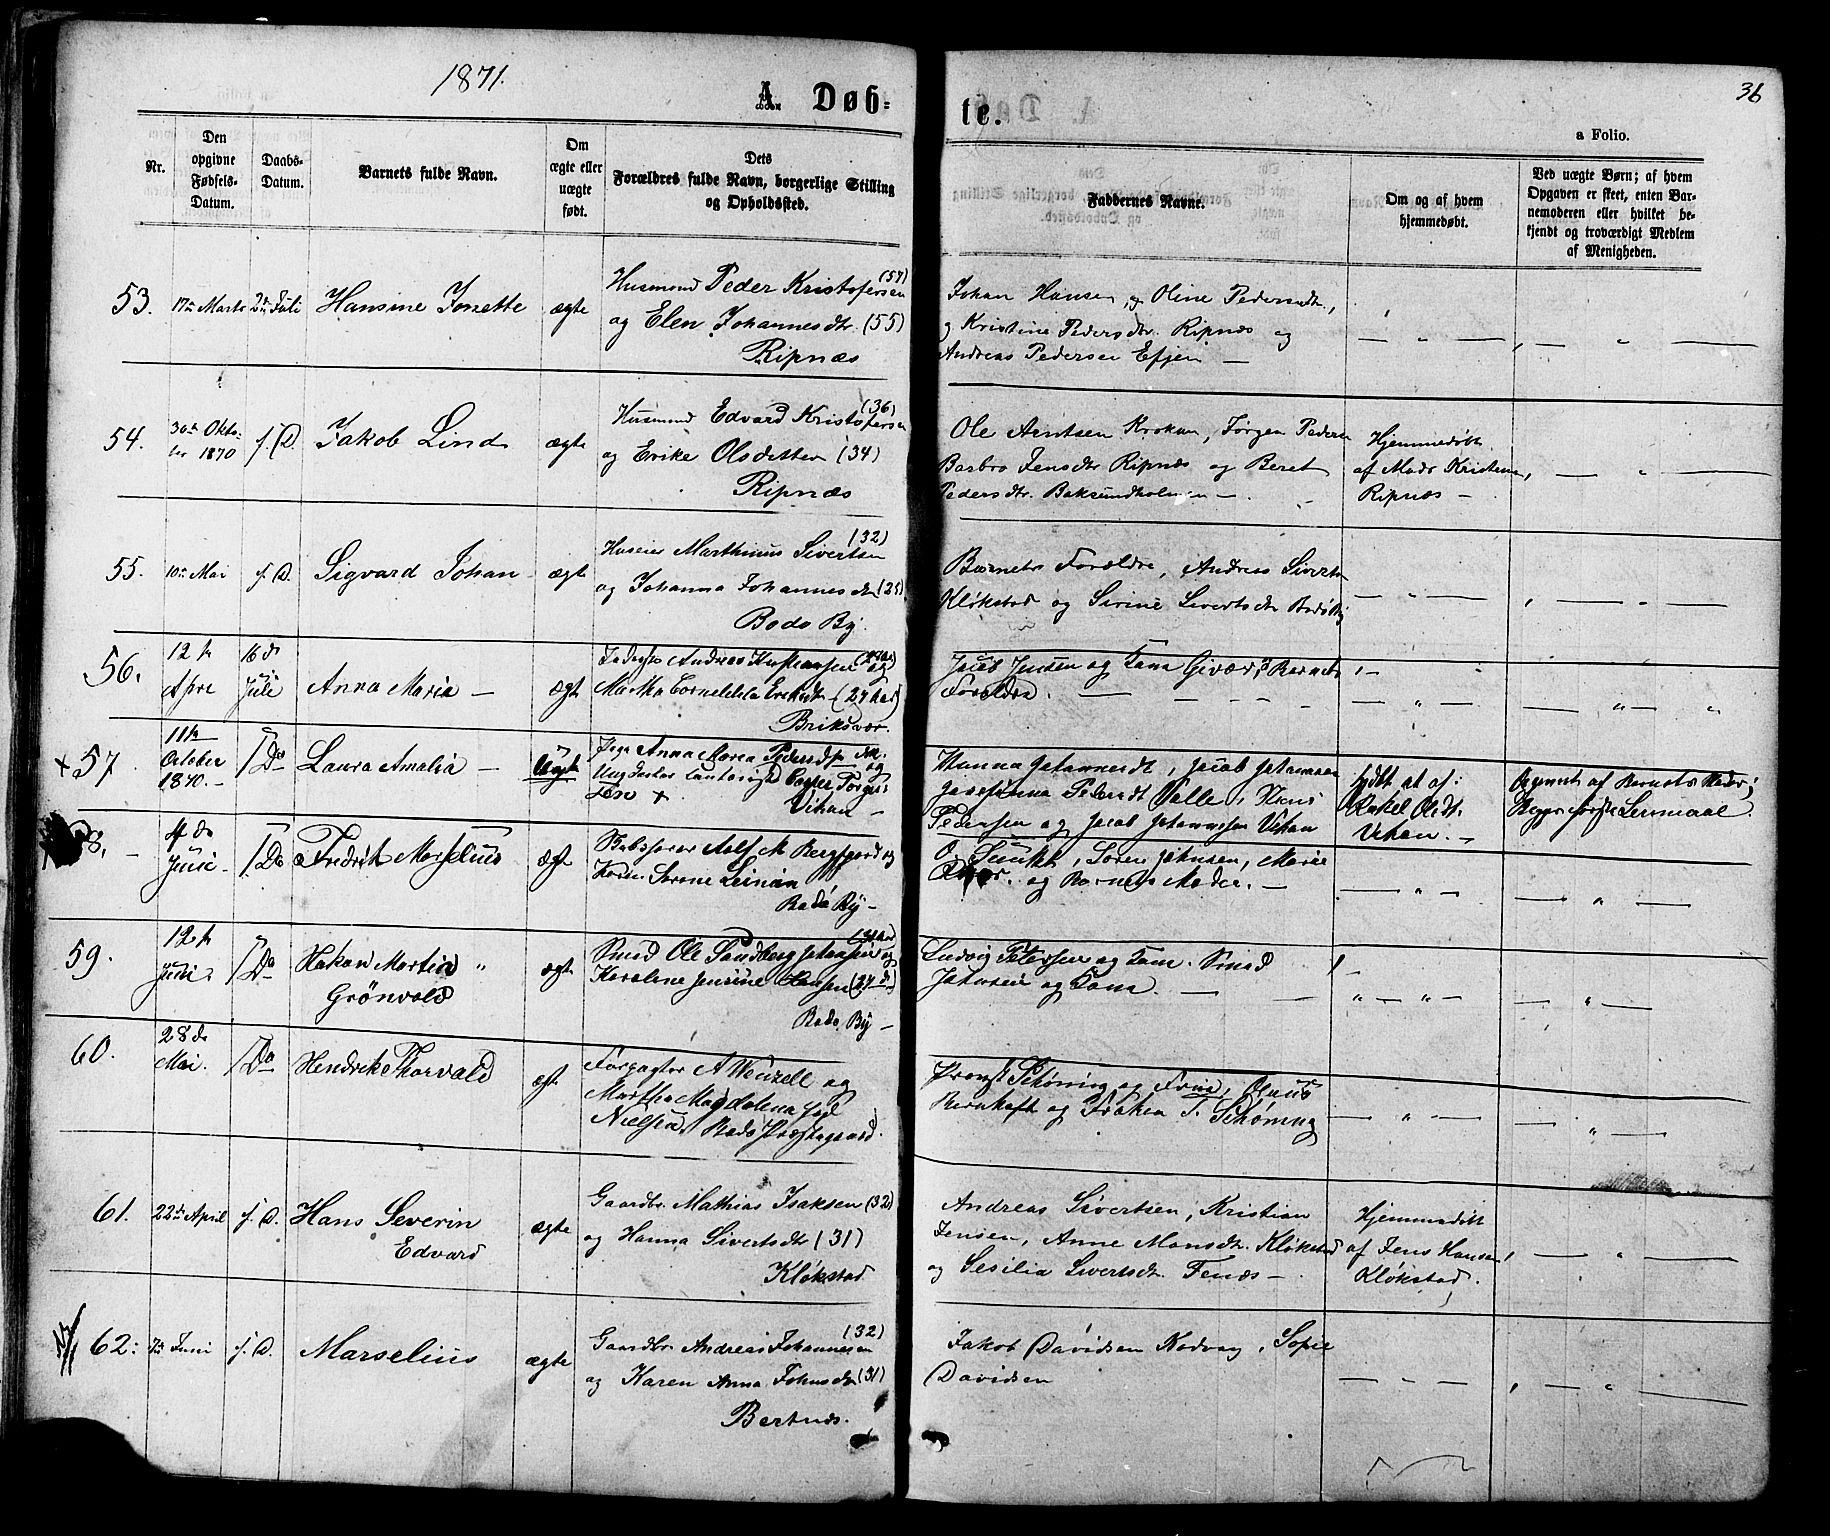 1871.
A. Døb-
te.
36
a Folio.
Nr.
Den
opgivne
Fødsels-
Datum.
Daabs-
Datum.
Barnets fulde Navn.
Om
ægte eller
uægte
født.
Dets
Forældres fulde Navn, borgerlige Stilling
og Opholdssted.
Faddernes Navne.
Om og af hvem
hjemmedøbt.
Ved uægte Børn; af hvem
Opgaven er skeet, enten Bar-
nemoderen eller hvilket be-
kjendt og troværdigt Medlem
af Menigheden.
53. 17de Marts 2den Juli Hansine Jonette ægte
Husmand Peder Kristofersen (57)
og Elen Johannesdtr. (55)
Ripnæs
Johan Hansen, og Oline Pedersdtr.,
og Kristine Pedersdtr. Ripnæs og
Andreas Pedersen Efjen —
— „ — — „ —
54. 30te Okto-
ber 1870 s. D. Jakob Lind ægte
Husmand Edvard Kristofersen (36)
og Erike Olsdatter (34)
Ripnæs
Ole Arntsen Krokan, Jørgen Peders
Barbro Jensdtr Ripnæs og Beret
Pedersdtr. Baksundholmen —
Hjemmedøbt
af Mads Kristensen,
Ripnæs —
— „ —
55. 10de Mai s. D. Sigvard Johan ægte
Huseier Marthinus Sivertsen (32)
og Johanna Johannesdtr
Bodø By.
Barnets Forældre, Andreas Siverts
Kløkstad og Sirine Sivertsdtr Bodø By
— „ — — „ —
56. 12te
Apre 16de
Juli Anna Maria — ægt
Andreas Kristiansen og
Martha Cornelelia (27 Aar)
Briksvær
Jacob Jensen og Kona Givær, Barnets
Forældre. —
— „ — — „ „
+ 57. 11te
October
1870. — Do Laura Amalia — Uægt
Pige Anna Maria Pedersdtr
og
+ Vikan —
Hanna Johannesdt, Jacob Johannesen
Josefinna Pedersdt Valle, Hans
Pedersen og Jacob Johannssen Vikan
født at af:
Rakel Olsdt.
Vikan. —
Opgivet af Barnets Moder;
58. — 4de
Juni — Do Fredrik Marselius ægt
Adolf M Berggaard og
Sørene
Bodø By —
O. , Søren Johnsen, Marie
og Barnets Moder. —
— „ — — „ —
59. 12te
Juni. Do Hakon Martin „
Grønvold ægt
Smed Ole Sandberg Johansen og
Karoline Jensine Hansen
Bodø By —
Ludvig Petersen og Kone. Smed
Johnsen og Kone. —
„ — „ — — „ —
60. 28de
Mai. Do Hendrik Thorvald ægt
Forpagter A Wenzell og
Martha Magdalena
Nielsen. Bodø Præstegaard.
Provst Schøning og Frue,
Bernhoft og Frøken T. Schøning
— „ — — „ —
61. 22de April s. D. Hans Severin
Edvard ægte
Gaardbr. Mathias Isaksen (32)
og Hanna Sivertsdtr (31)
Kløkstad
Andreas Sivertsen, Kristian
Jensen, Anne Monsdtr. Kløkstad
og Sesilia Sivertsdtr. Fenæs —
Hjemmedøbt
af Jens Hansen,
Kløkstad.
— „ —
62. 7de Juni s. D. Marselius ægte
Gaardbr Andreas Johannesen (32)
og Karen Anna Johnsdtr (31)
Bertnæs.
Jakob Davidsen Nodvag, Sofie
Davidsen
— „ — — „ —